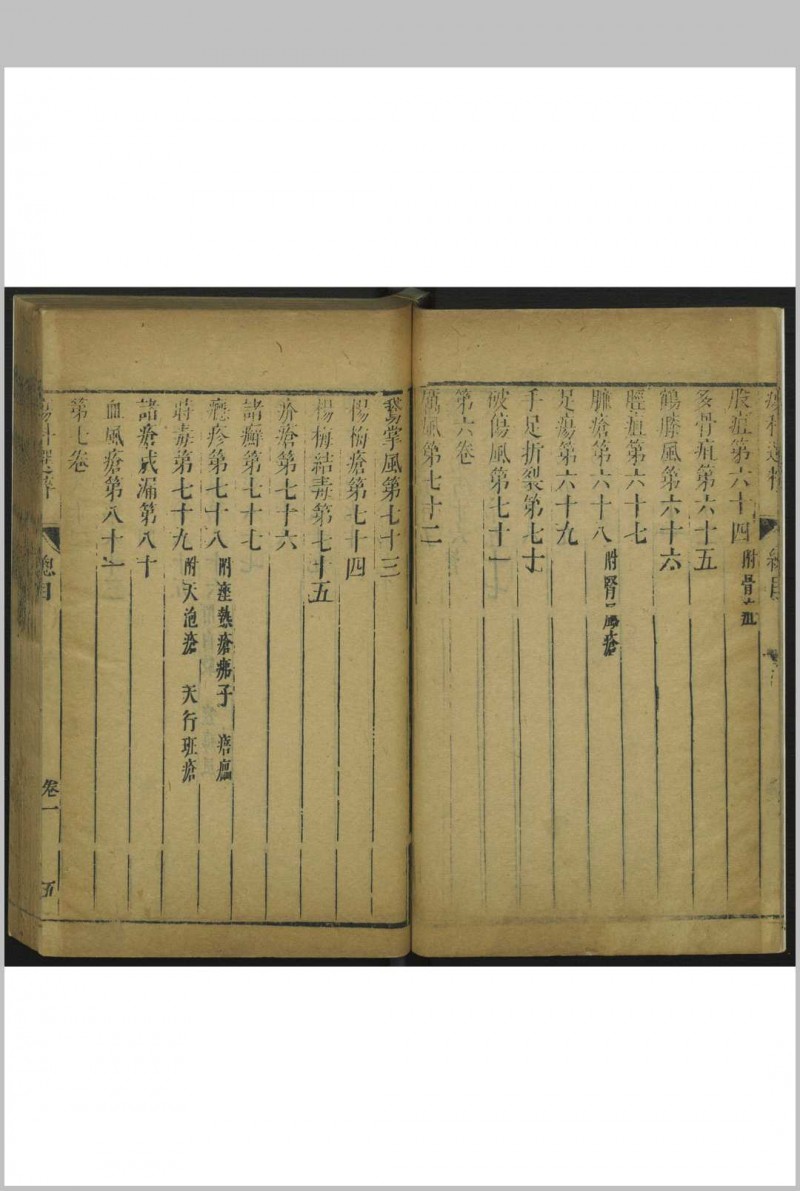 瘍科選粹 總目
股疽第六十四 附骨疽
多骨疽第六十五
鶴膝風第六十六
脛疽第六十七
臁瘡第六十八 附腎風瘡
足瘍第六十九
手足折裂第七十
破傷風第七十一
第六卷
厲風第七十二
鵞掌風第七十三
楊梅瘡第七十四
楊梅結毒第七十五
疥瘡第七十六
諸癬第七十七
癮疹第七十八 附痤熱瘡疿子 㾦㿔
蒔毒第七十九 附天泡瘡 天行班瘡
諸瘡成漏第八十
血風瘡第八十一
第七卷
瘍科選粹 總目 卷一 五